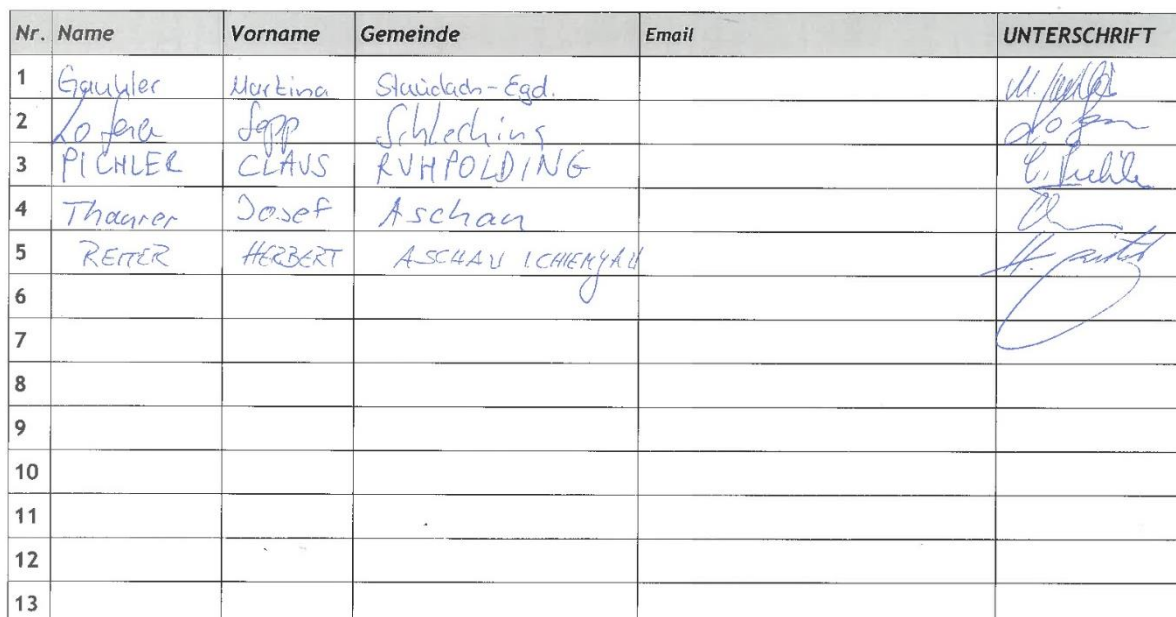 Nr. Name Vorname Gemeinde Email UNTERSCHRIFT
1 Gauhler Martina Staudach-Egd.
2 Lofera Sepp Schleching
3 PICHLER CLAUS RUHPOLDING C. Pichler
4 Thaurer Josef Aschau
5 REITER HERBERT ASCHAU I. CHIEMGAU
6
7
8
9
10
11
12
13